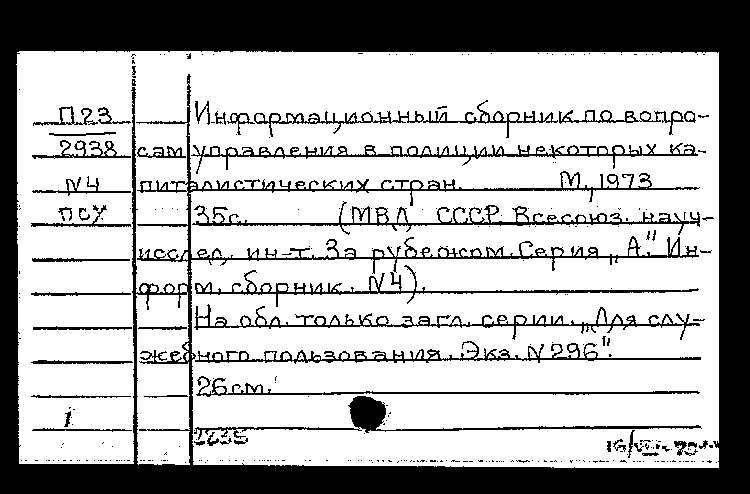 П23 Информационный сборник по вопро-
2938 сам управления в полиции некоторых ка-
N4 питалистических стран. М., 1973
ПСУ 35с. (МВД СССР. Всесоюз. науч-
исслед. ин-т. За рубежом. Серия „А". Ин-
форм. сборник. N4).
На обл. только загл. серии. „Для слу-
жебного пользования. Экз. N296".
26см.
1
2835